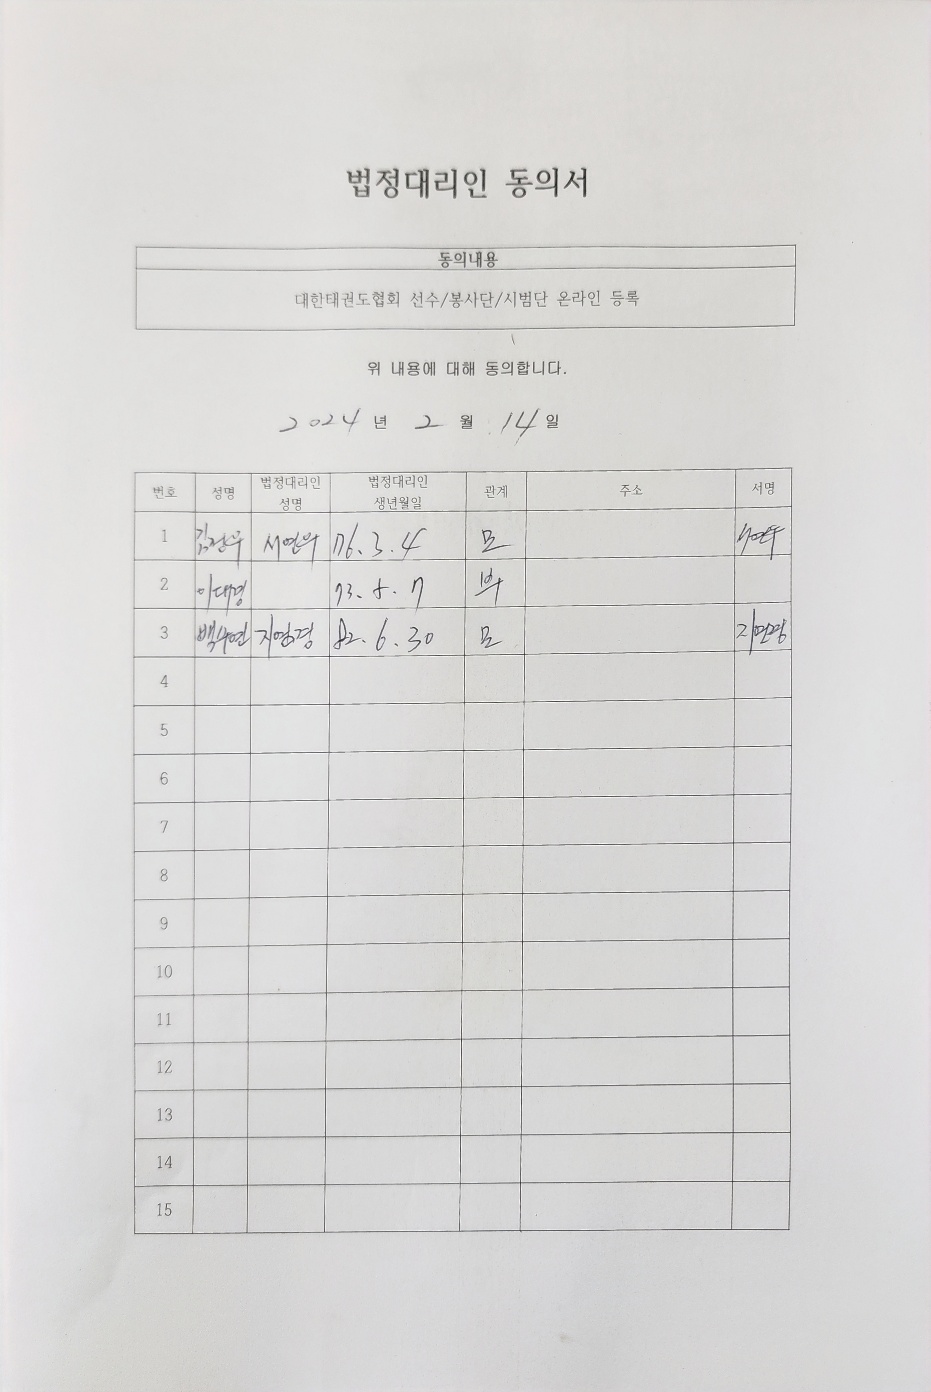 법정대리인 동의서
동의내용
대한태권도협회 선수/봉사단/시범단 온라인 등록
위 내용에 대해 동의합니다.
2024 년 2 월 14 일
번호 성명 법정대리인 성명 법정대리인 생년월일 관계 주소 서명
1 서연우 76. 3. 4 모
2 이대경 73. 8. 7 부
3 백서연 82. 6. 30 모
4
5
6
7
8
9
10
11
12
13
14
15